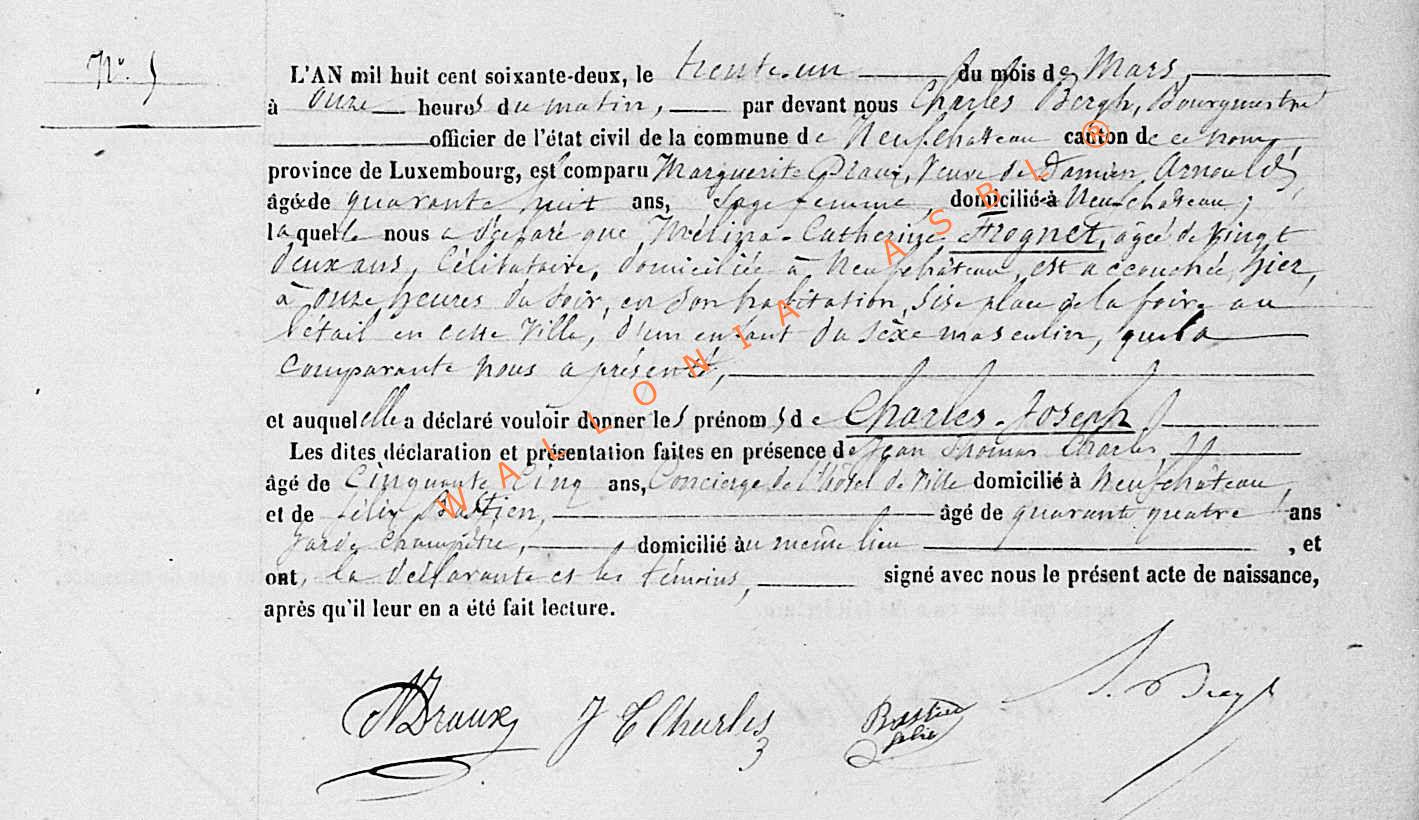 N° 5
L'AN mil huit cent soixante-deux, le trente-un du mois de Mars,
à onze heures du matin, par devant nous Charles Bergh, Bourgmestre
officier de l'état civil de la commune de Neufchateau canton de ce nom,
province de Luxembourg, est comparu Marguerite Draux, Veuve de Damien Arnould,
âgée de quarante huit ans, Sage femme, domiciliée à Neufchateau,
laquelle nous a déclaré que Mélina-Catherine Frognet, agée de vingt
deux ans, Célibataire, domiciliée à Neufchâteau, est accouchée, hier,
à onze heures du soir, en son habitation, sise place de la foire au
bétail en cette Ville, d'un enfant du sèxe masculin, que la
Comparante nous a présenté,
et auquel elle a déclaré vouloir donner les prénoms de Charles-Joseph
Les dites déclaration et présentation faites en présence de Jean Thomas Charles,
âgé de Cinquante Cinq ans, Concierge de l'hôtel de Ville domicilié à Neufchâteau,
et de félix Bastien, âgé de quarant quatre ans
garde champêtre, domicilié au même lieu, et
ont, la déclarante et les témoins, signé avec nous le présent acte de naissance,
après qu'il leur en a été fait lecture.
MDraux J T Charles Bastien
félix
WALLONIA ASBL ®